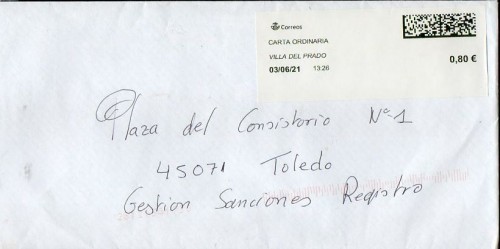 Correos
CARTA ORDINARIA
VILLA DEL PRADO
03/06/21 13:26
0,80 €
Plaza del Consistorio Nº-1
45071 Toledo
Gestion Sanciones Registro